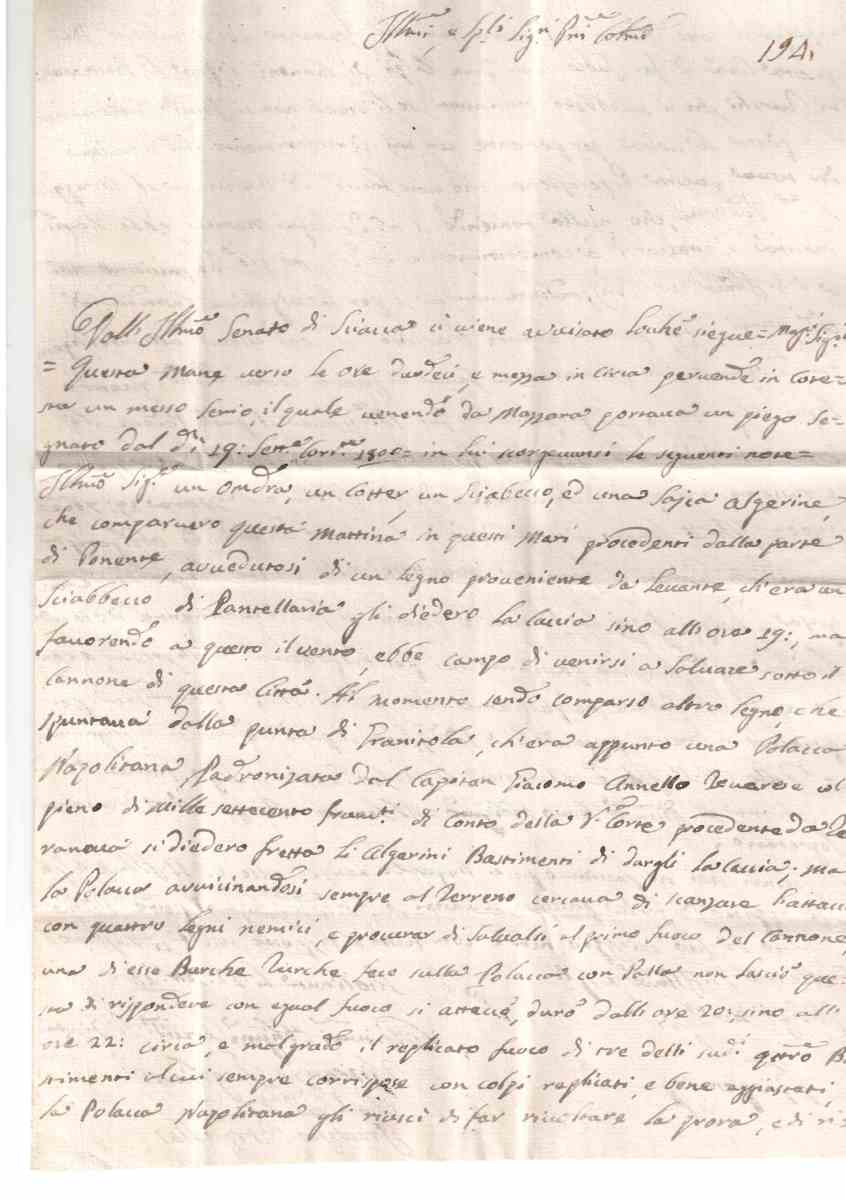 Illmi e Spli Sigri Pni Colmi
194.
Dall' Illmo Senato di Sciacca ci viene avvisato locche siegue= Magci Sigri
= Questa mane verso le ore duodeci, e mezza in circa pervende in Cote=
sta un messo serio, il quale venendo da Mazzara portava un piego se=
gnato dal di 19: Sette Corrte 1800= in lui scorgevansi le seguenti note=
Illmo Sigre un Omdra, un Cotter, un Sciabecco, ed una Sajca Algerine,
che comparvero questa mattina in questi Mari procedenti dalla parte
di Ponente, avvedutosi di un legno proveniente da levante, ch'era un
Sciabbecco di Pantellaria gli diedero la caccia sino alli ore 19:, ma
favorendo a questo il vento, ebbe campo di venirsi a salvare sotto il
Cannone di questa Città. Al momento sendo comparso altro legno, che
spuntava dalla punta di Granitola, ch'era appunto una Polacca
Napolitana Padronizata dal Capitan Giacomo Annello col
pieno di mille settecento frumti di conto della Rl Corte procedente da Te
ranova si diedero fretta li Algerini Bastimenti di dargli la caccia; ma
la Polacca avvicinandosi sempre al Terreno cercava di scanzare l'attacco
con quattro legni nemici, e procurar di salvalsi al primo fuoco del Cannone,
una di esse Barche Turche fece sulla Polacca con Palla non lasciò que=
sta di rispondere con egual fuoco si attaccò, durò dalli ore 20:, sino alli
ore 22: circa, e malgrado il replicato fuoco di tre delli sudi quatro Ba
stimenti al cui sempre corrispose con colpi replicati, e bene aggiastati,
la Polacca Napolitana gli riuscì di far rivoltare la prora, e di ri=